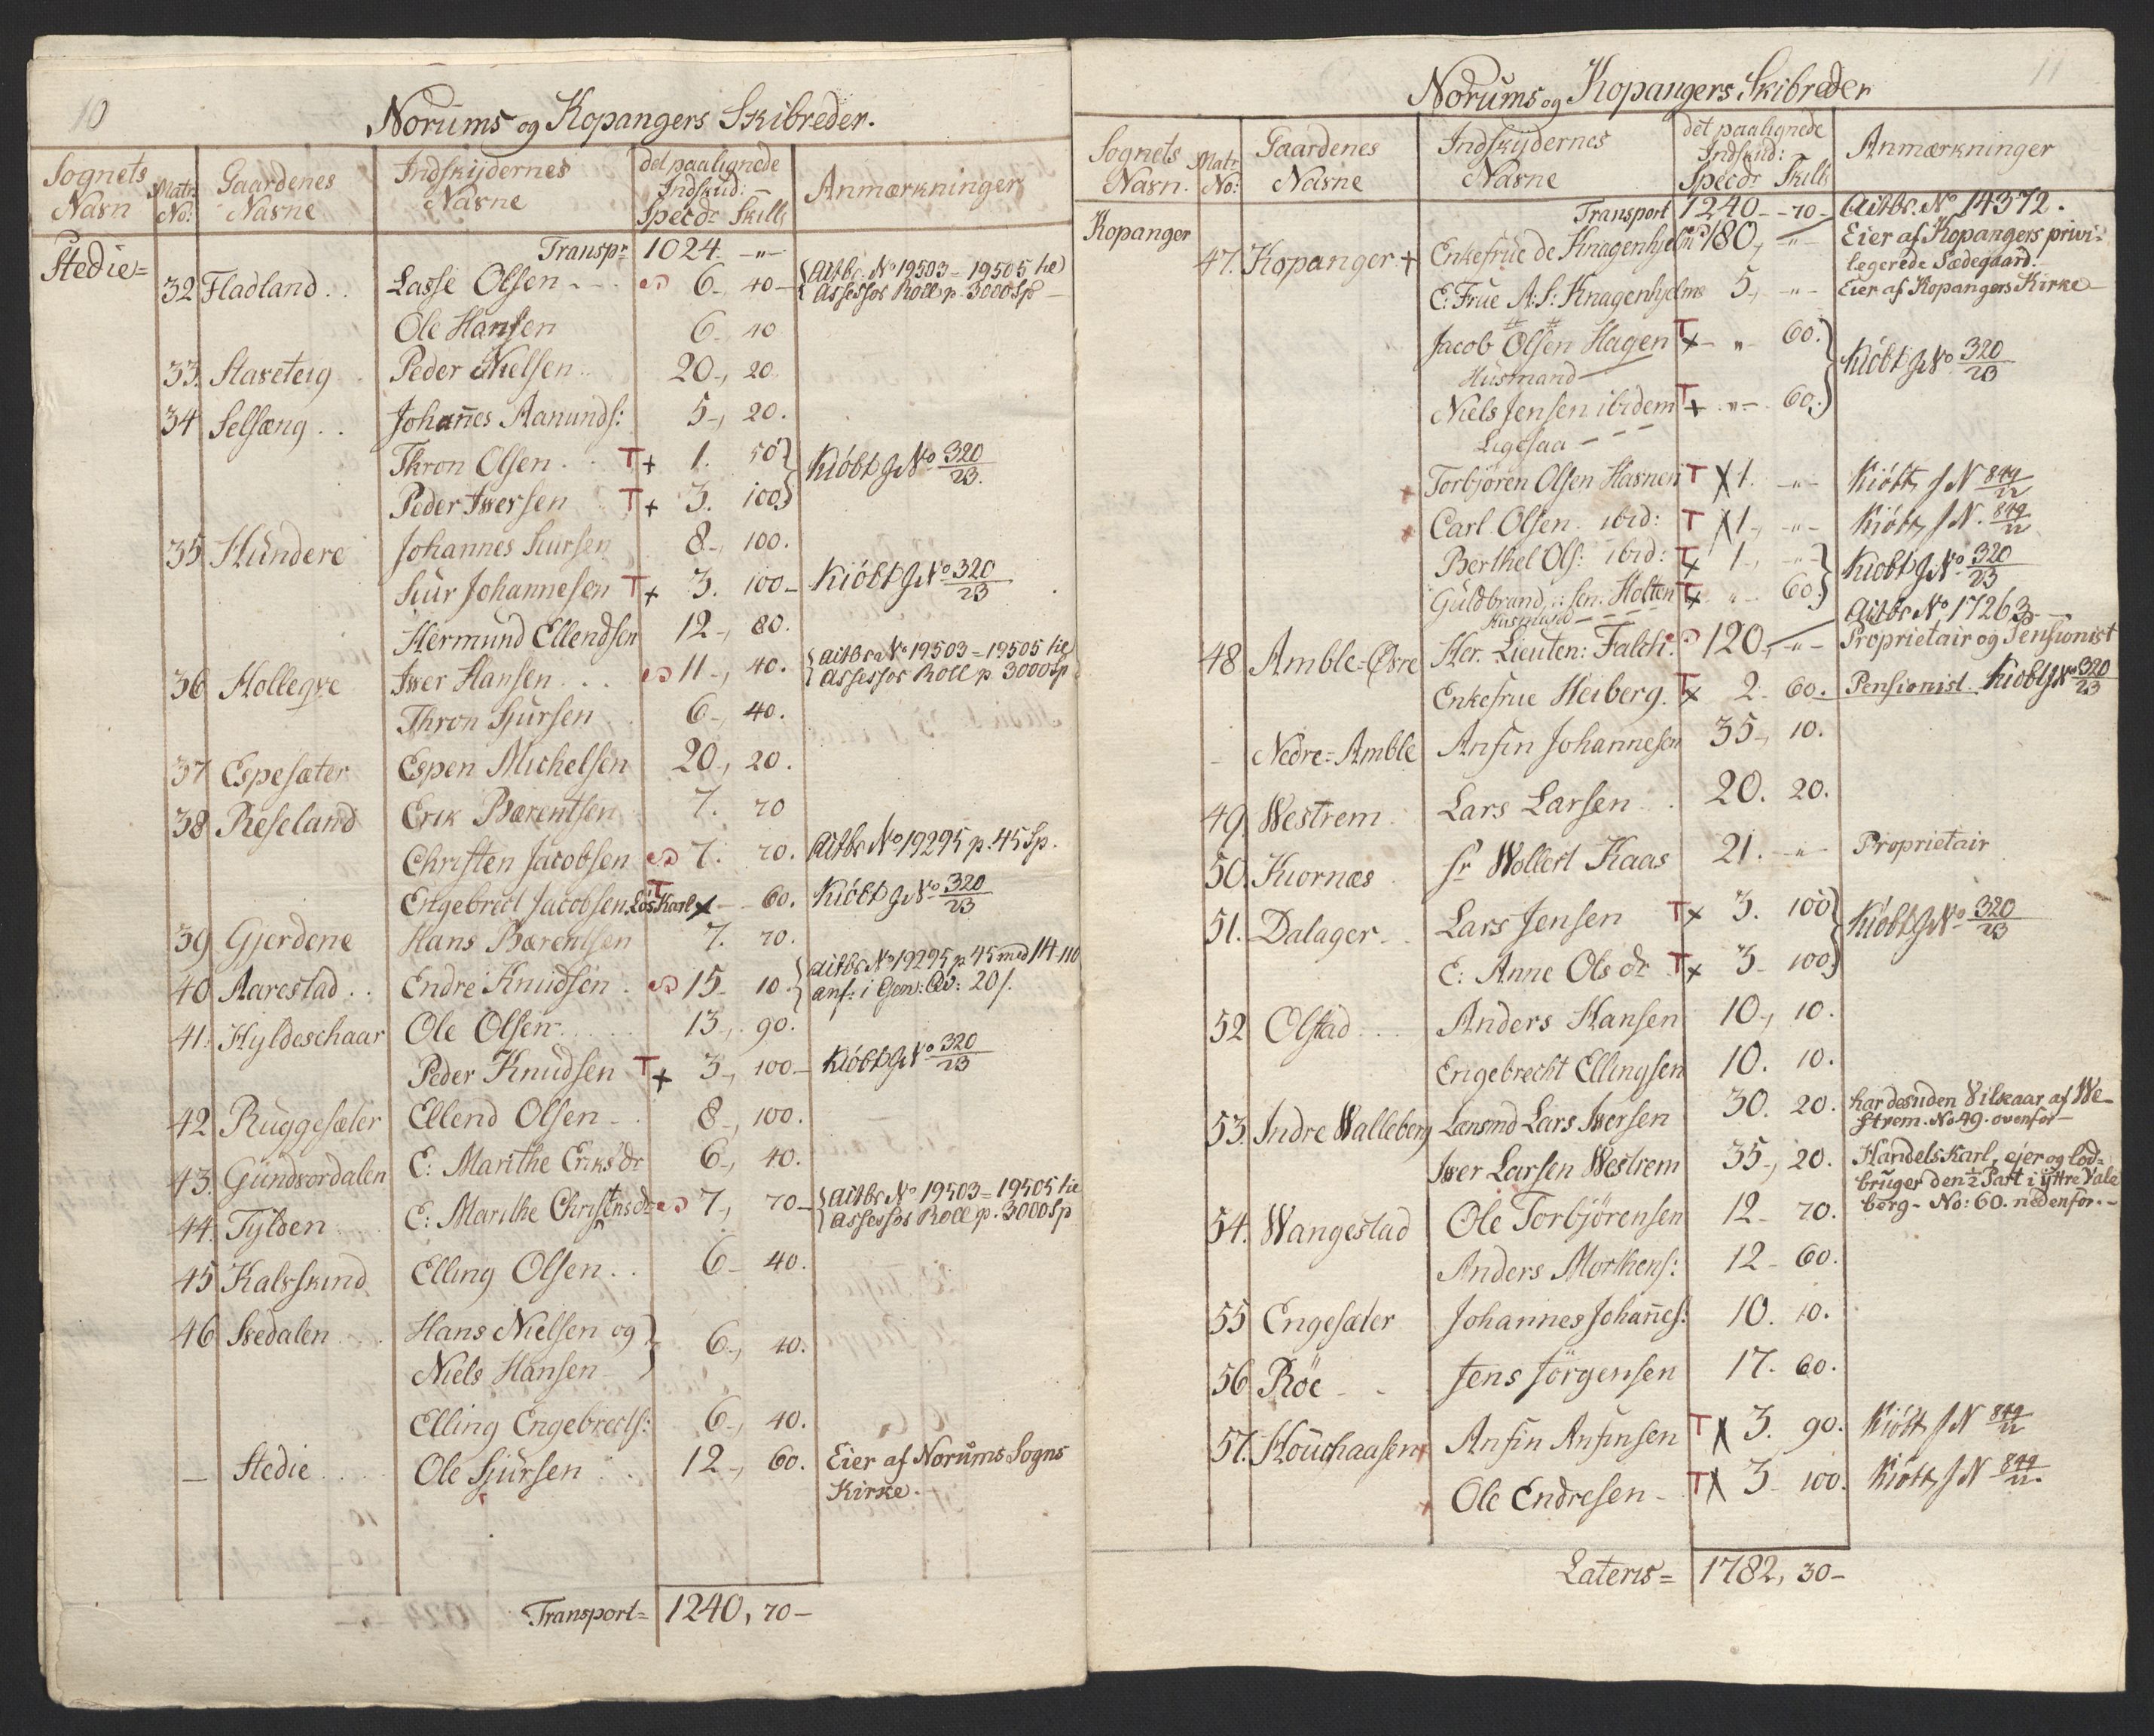 10
Norums og Kopangers Skibreder.
Sognets Navn | Matr. No: | Gaardenes Navne | Indskydernes Navne | det paalignede Indskud: Specdr Skill | Anmærkninger
Stedie= Transpr 1024. -"-
32 Fladland . . Lasse Olsen - - - 6-, 40- {Aitbr. No 19503 = 19505 til Assessor Roll p. 3000 Sp
Ole Hansen 6 40
33. Staveteig Peder Nielsen . . 20-, 20.
34 Selseng . . Johanes Aanunds: 5-, 20.
Thron Olsen . . T + 1. 50}
Peder Iversen T + 3. 100} Kiöbt J No 320/23.
35 Hundere Johannes Siursen 8-, 100.
Siur Johannesen T + 3. 100- Kiöbt J No 320/23
Hermund Ellendsen 12-, 80.
36 Hollegve Iver Hansen . . . 11-, 40. {Aitbr No 19503 = 19505 til Assessor Roll p 3000 Sp
Thron Sjursen 6-, 40.
37 Espesæter Espen Michelsen 20-, 20.
38 Reseland Erik Bærentsen 7. 70
Christen Jacobsen 7. 70. Aitbr No 19295 p. 45 Sp.
Engebrect Jacobsen Lös Karl T x - 60. Kiöbt J No 320/23
39 Gjerdene Hans Bærentsen 7. 70.
40 Aarestad . . Endre Knudsen . 15- 10. {Aitbr No 19295 p 45 med 14-110 anf: i Gem: Qv: 20/.
41. Hyldeschaar Ole Olsen . . . 13-, 90.
Peder Knudsen T + 3-, 100- Kiöbt J No 320/23
42 Ruggesæter Ellend Olsen - . 8-, 100.
43. Gundvordalen E: Marithe Eriksdr 6-, 40.
44. Tylden E: Marithe Christensdr 7-, 70- {Aitbr No 19503 = 19505 til Assessor Roll p. 3000 Sp
45 Kalvskind Elling Olsen . . 6- 40.
46 Svedalen . . . Hans Nielsen og }
Niels Hansen - } 6-, 40.
Elling Engebrects: 6-, 40.
- Stedie . . . . Ole Sjursen . . 12-, 60. Eier af Norums Sogns
Kirke.
Transport= 1240, 70-
11
Norums og Kopangers Skibreder
Sognets Navn. | Matr No: | Gaardenes Navne | Indskydernes Navne | det paalignede Indskud: Specdr Skill | Anmærkninger
Kopanger Transport 1240 - 70- Aitbr. No 14372.
47. Kopanger + Enkefrue de Knagenhjelm 180, -"- Eier af Kopangers privi-
legerede Sædegaard.
E: Frue A: S: Knagenhjelms 5-, -"- Eier af Kopangers Kirke
Jacob Olsen Hagen T x - " - 60.}
Husmand
Niels Jensen ibidem T + . "- 60.} Kiöbt J No 320/23
Ligesaa - - -
Torbjören Olsen Havnen T X 1. -"- Kiöbt J N 849/22
Carl Olsen. ibid: T X 1-, -"- Kiöbt J N. 849/22
Berthel Ols: ibid: T x 1-, -"-}
Guldbrand Holten T x . " 60.} Kiöbt J No 320/23
Husmand - -
Aitbr No 17263
48 Amble=Övre Hr. Lieuten: Falch: 120, -"- Proprietair og Pensionist
Enkefrue Heiberg. T x 2- 60. Pensionist. Kiöbt J No 320/23
- Nedre=Amble Ansin Johannesen 35-, 10.
49 Westrem. Lars Larsen . . 20. 20.
50. Kiornæs Sr Wollert Kaas 21. -"- Proprietair
51. Dalager - . Lars Jensen T x 3. 100}
E: Anne Olsdr T x 3- 100} Kiöbt J No 320/23
52 Olstad . . . Anders Hansen 10-, 10.
Engebrecht Ellingsen 10. 10.
53. Indre Walleberg Lænsmd Lars Iversen 30. 20. har desuden Vilkaar af We-
strem. No 49. ovenfor
Iver Larsen Westrem 35-, 20. Handelskarl, ejer og lod=
bruger den ½ Part i Yttre Vale
54. Wangestad Ole Torbjörensen 12- 70. berg - No: 60. nedenfor. -
Anders Morthens: 12- 60.
55 Engesæter Johannes Johanes: 10. 10.
56 Röe - - Jens Jörgensen 17. 60.
57. Houchaasen Ansin Ansinsen T X 3. 90. Kiöbt J N 849/22
Ole Endresen - T X 3- 100. Kiöbt J N 849/22.
Lateris= 1782, 30-